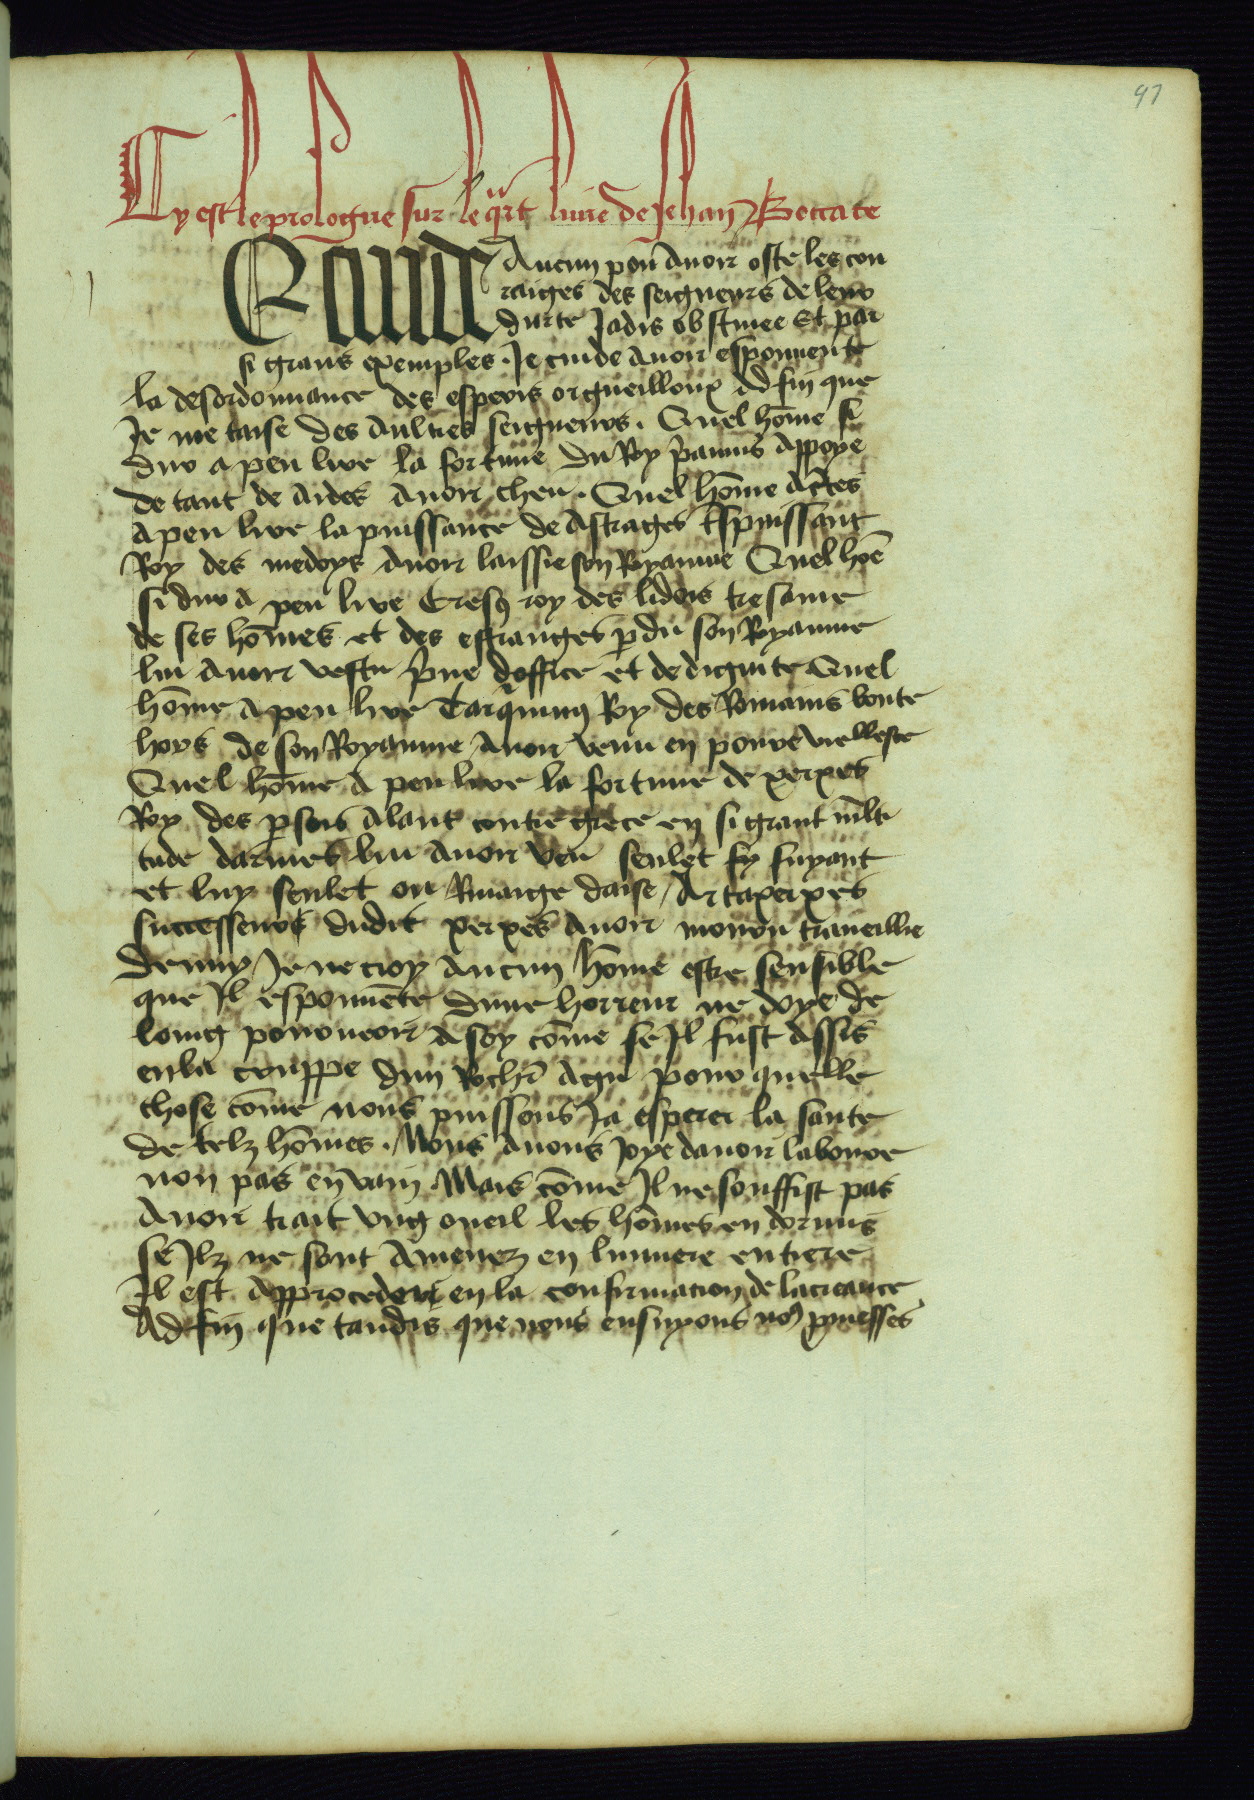 97
Cy est le prologue sur le qrt livre de Jehan Boccace
Cuid Aucun pou Avoir oste les cou
raiges des seigneurs de leur
durte Jadis obstinee Et par
si grans exemples. Je cuide Avoir espouente
la desordonnance des esperis orgueilloux Ad fin que
Je me taise des Aultres seigneurs. Quel hōme si
dur a peu lire la fortune du Roy priamus Appoye
de tant de Aides Avoir cheu. Quel hōme
A peu lire la puissance de Astrages tspuissant
Roy des medoys Avoir laissie son Royaume Quel hōe
si dur A peu lire Cresus roy des lidois tresame
de ses hōmes et des estranges pdu son Royaume
lui Avoir vestu doffice et de dignite Quel
hōme A peu lire Tarquinus Roy des Romains boute
hors de son Royaume Avoir venu en povre viellesce
Quel hōme A peu lire la fortune de xerxes
Roy des persois Alant contre grece en si grant mlti
tude darmes lui Avoir veu seulet fuyant
et luy seulet ou Rivaige daise / Artaxerxes
successeur dudit xerxes Avoir mouru traueillie
denuy Je ne croy Aucun hōme estre sensible
que Il espouēte dune horreur ne voye de
loing pourveoir A soy cōme se Il fust Assis
en la crouppe dun Rochī Agu pour quelle
chose cōme nous puissons Ja esperer la sante
de telz hōmes. Nous Avons Joye davoir laboure
non pas en vain Mais cōme Il ne souffist pas
Avoir trait ung oueil les hōmes endormis
se Ilz ne sont Amenez en lumiere entiere
Il est A proceder en la confirmacion de la creance
Ad fin que tandis que nous ensuyvons noz pmesses